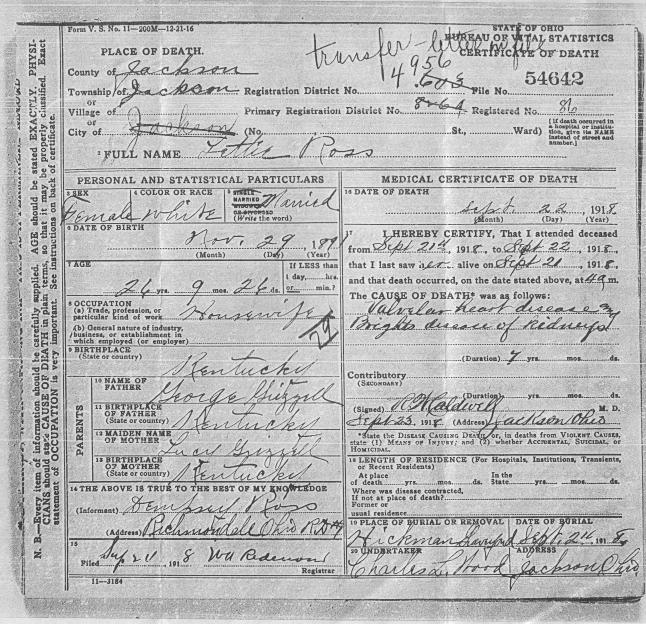 Form V. S. No. 11—200M—12-21-16
STATE OF OHIO
BUREAU OF VITAL STATISTICS
CERTIFICATE OF DEATH
transfer - letter in file
PLACE OF DEATH.
County of Jackson
4956
Township of Jackson Registration District No. 603 File No. 54642
or
Village of Primary Registration District No. 8264 Registered No. 86
or
City of Jackson (No. St., Ward)
[If death occurred in a hospital or institution, give its NAME instead of street and number.]
2 FULL NAME Lottie Ross
PERSONAL AND STATISTICAL PARTICULARS
3 SEX
Female
4 COLOR OR RACE
White
5 SINGLE
MARRIED
WIDOWED
OR DIVORCED
(Write the word)
Married
6 DATE OF BIRTH
Nov. 29, 1891
(Month) (Day) (Year)
7 AGE
26 yrs. 9 mos. 26 ds.
If LESS than
1 day, hrs.
or min.?
8 OCCUPATION
(a) Trade, profession, or
particular kind of work
Housewife
(b) General nature of industry,
business, or establishment in
which employed (or employer)
29
9 BIRTHPLACE
(State or country)
Kentucky
PARENTS
10 NAME OF
FATHER
George Grizzell
11 BIRTHPLACE
OF FATHER
(State or country)
Kentucky
12 MAIDEN NAME
OF MOTHER
Lucy Grizzel
13 BIRTHPLACE
OF MOTHER
(State or country)
Kentucky
14 THE ABOVE IS TRUE TO THE BEST OF MY KNOWLEDGE
(Informant) Dempsey Ross
(Address) Richmondale Ohio
15
Filed 191 8
Registrar
11—3184
MEDICAL CERTIFICATE OF DEATH
16 DATE OF DEATH
Sept. 22, 1918
(Month) (Day) (Year)
17 I HEREBY CERTIFY, That I attended deceased
from Sept 21st, 1918, to Sept 22, 1918,
that I last saw her alive on Sept 21, 1918,
and that death occurred, on the date stated above, at 4 a m.
The CAUSE OF DEATH* was as follows:
Valvular heart disease and
Brights disease of Kidneys
(Duration) 7 yrs. mos. ds.
Contributory
(SECONDARY)
(Duration) yrs. mos. ds.
(Signed) Caldwell M. D.
Sept 23, 1918 (Address) Jackson Ohio
*State the DISEASE CAUSING DEATH or, in deaths from VIOLENT CAUSES,
state (1) MEANS OF INJURY; and (2) whether ACCIDENTAL, SUICIDAL, or
HOMICIDAL.
18 LENGTH OF RESIDENCE (For Hospitals, Institutions, Transients,
or Recent Residents)
At place In the
of death yrs. mos. ds. State yrs. mos. ds.
Where was disease contracted,
if not at place of death?
Former or
usual residence
19 PLACE OF BURIAL OR REMOVAL
DATE OF BURIAL
Hickman Sept. 24, 1918
20 UNDERTAKER
ADDRESS
Charles L. Wood Jackson Ohio
N. B.—Every item of information should be carefully supplied. AGE should be stated EXACTLY. PHYSI-
CIANS should state CAUSE OF DEATH in plain terms, so that it may be properly classified. Exact
statement of OCCUPATION is very important. See instructions on back of certificate.